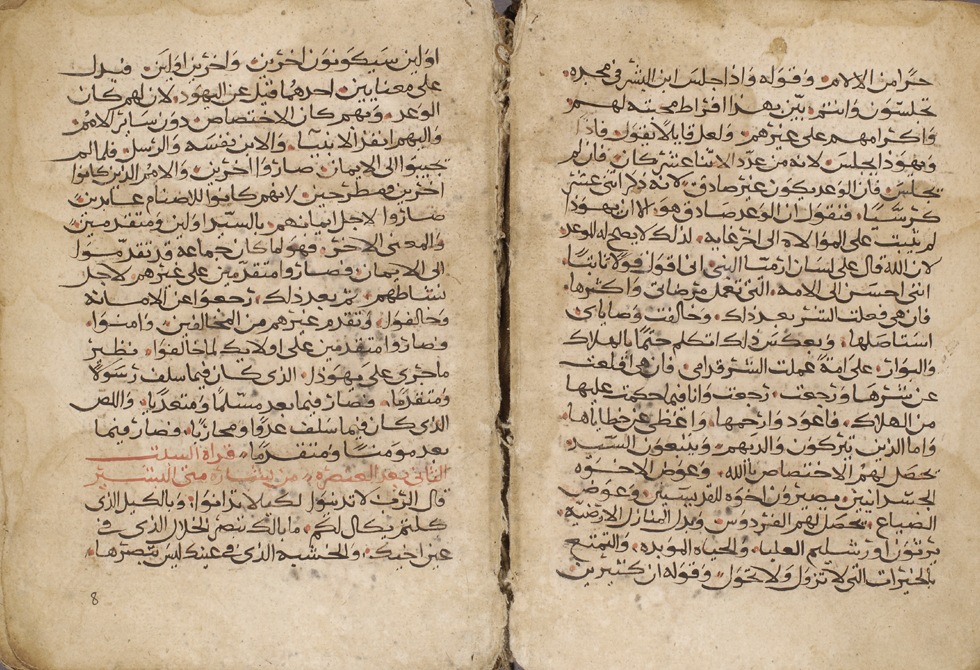 حرًا من الالام. وقوله واذا جلس ابن البشر في مجده
تجلسون وانتم. بيّن بهذا افراط محبته لهم
واكرامهم على غيرهم. ولعل قايلا يقول فاذا
ويهوذا يجلس لانه من عدد الاثنا عشر كان فان لم
يجلس فان الوعد يكون غير صادق لانه ذكر اثنى عشر
كرسيًا. فنقول ان الوعد صادق هو. الا ان يهوذا
لم يثبت على الموالاه الى اخر غايه. لذلك لا يصح له الوعد
لان الله قال على لسان ارميا النبي اني اقول قولا ثابتا
انني احسن الى الامه التي تعمل مرضاتي واكثرها
فان هي فعلت الشر بعد ذلك. وخالفت وصاياي
استاصلها. وبعكس ذلك اتكلم حتمًا بالهلاك
والبوار على امة عملت الشر قدامي. فان هي اقلعت
عن شرها ورجعت. رجعت وانا فيما حكمت عليها
من الهلاك. فاعود وارحمها. واعفي عن خطاياها
واما الذين يتركون والديهم. ويتبعون السيد
يحصل لهم الاختصاص بالله. وعوض الاخوه
الجسدانيين يصيرون اخوه للقديسين. وعوض
الضياع. يحصل لهم الفردوس. وبدل المنازل الارضيه
يرثون اورشليم العليا. والحياه الموبده. والتمتع
بالخيرات التي لا تزول ولا تحول. وقوله ان كثيرين
اولين سيكونون اخرين. واخرين اولين. فيدل
على معنايين. احدهما قيل عن اليهود. لان لهم كان
الوعد. وبهم كان الاختصاص دون سائر الامم
واليهم انفذ الانبيا. والابن نفسه والرسل فلما لم
يجيبوا الى الايمان صاروا اخرين. والامم الذين كانوا
اخرين مطرحين لانهم كانوا للاصنام عابدين
صاروا لاجل ايمانهم بالسيد اولين ومتقدمين
والمعنى الاخر. فهو لما كان جماعة قد تقدموا
الى الايمان فصاروا متقدمين على غيرهم لاجل
نشاطهم. ثم بعد ذلك رجعوا عن الامانه
وخالفوا. وتقدم غيرهم من المخالفين. وامنوا
فصاروا متقدمين على اولايك لما خالفوا. نظير
ما جرى على يهوذا. الذي كان فيما سلف رسولا
ومتقدما. فصار فيما بعد مسلمًا ومتعديا. واللص
الذي كان فيما سلف عدوا ومحاربًا. فصار فيما
بعد مومنًا ومتقدمًا. قراة السبت
الثاني بعد العنصره. من بشارة متى البشير
قال الرب لا تدينوا لكيلا تدانوا. وبالكيل الذي
كلتم يكال لكم. ما بالك تبصر الخلال الذي في
عين اخيك. والخشبه الذي في عينك ليس تبصرها.
8